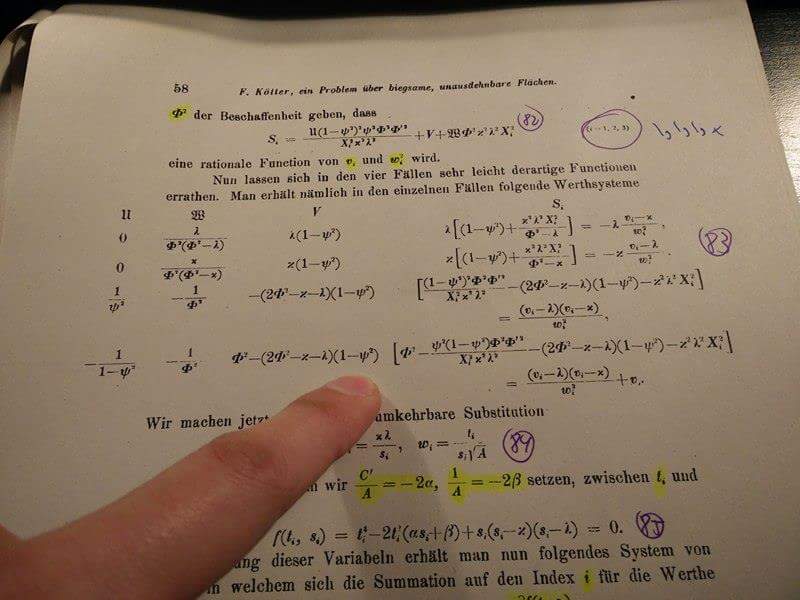 58 F. Kötter, ein Problem über biegsame, unausdehnbare Flächen.
Φ² der Beschaffenheit geben, dass
S_i = 𝔘(1−ψ²)ψ²Φ²Φ'²/X_i²ϰ²λ² + V + 𝔚Φ²ϰ²λ²X_i² (82) (i = 1, 2, 3)
eine rationale Function von v_i und w_i² wird.
Nun lassen sich in den vier Fällen sehr leicht derartige Functionen
errathen. Man erhält nämlich in den einzelnen Fällen folgende Werthsysteme
𝔘 𝔚 V S_i
0 λ/Φ²(Φ²−λ) λ(1−ψ²) λ[(1−ψ²)+ϰ²λ²X_i²/Φ²−λ] = −λ v_i−ϰ/w_i²,
0 ϰ/Φ²(Φ²−ϰ) ϰ(1−ψ²) ϰ[(1−ψ²)+ϰ²λ²X_i²/Φ²−ϰ] = −ϰ v_i−λ/w_i². (83)
1/ψ² −1/Φ² −(2Φ²−ϰ−λ)(1−ψ²) [(1−ψ²)²Φ²Φ'²/X_i²ϰ²λ² −(2Φ²−ϰ−λ)(1−ψ²)−ϰ²λ²X_i²]
= (v_i−λ)(v_i−ϰ)/w_i²,
−1/1−ψ² −1/Φ² Φ²−(2Φ²−ϰ−λ)(1−ψ²) [Φ²−ψ²(1−ψ²)Φ²Φ'²/X_i²ϰ²λ² −(2Φ²−ϰ−λ)(1−ψ²)−ϰ²λ²X_i²]
= (v_i−λ)(v_i−ϰ)/w_i² + v_i.
Wir machen jetzt umkehrbare Substitution
= ϰλ/s_i, w_i = t_i/s_i√A (84)
wir C'/A = −2α, 1/A = −2β setzen, zwischen t_i und
f(t_i, s_i) = t_i⁴−2t_i²(αs_i+β)+s_i(s_i−ϰ)(s_i−λ) = 0. (85)
dieser Variabeln erhält man nun folgendes System von
welchem sich die Summation auf den Index i für die Werthe